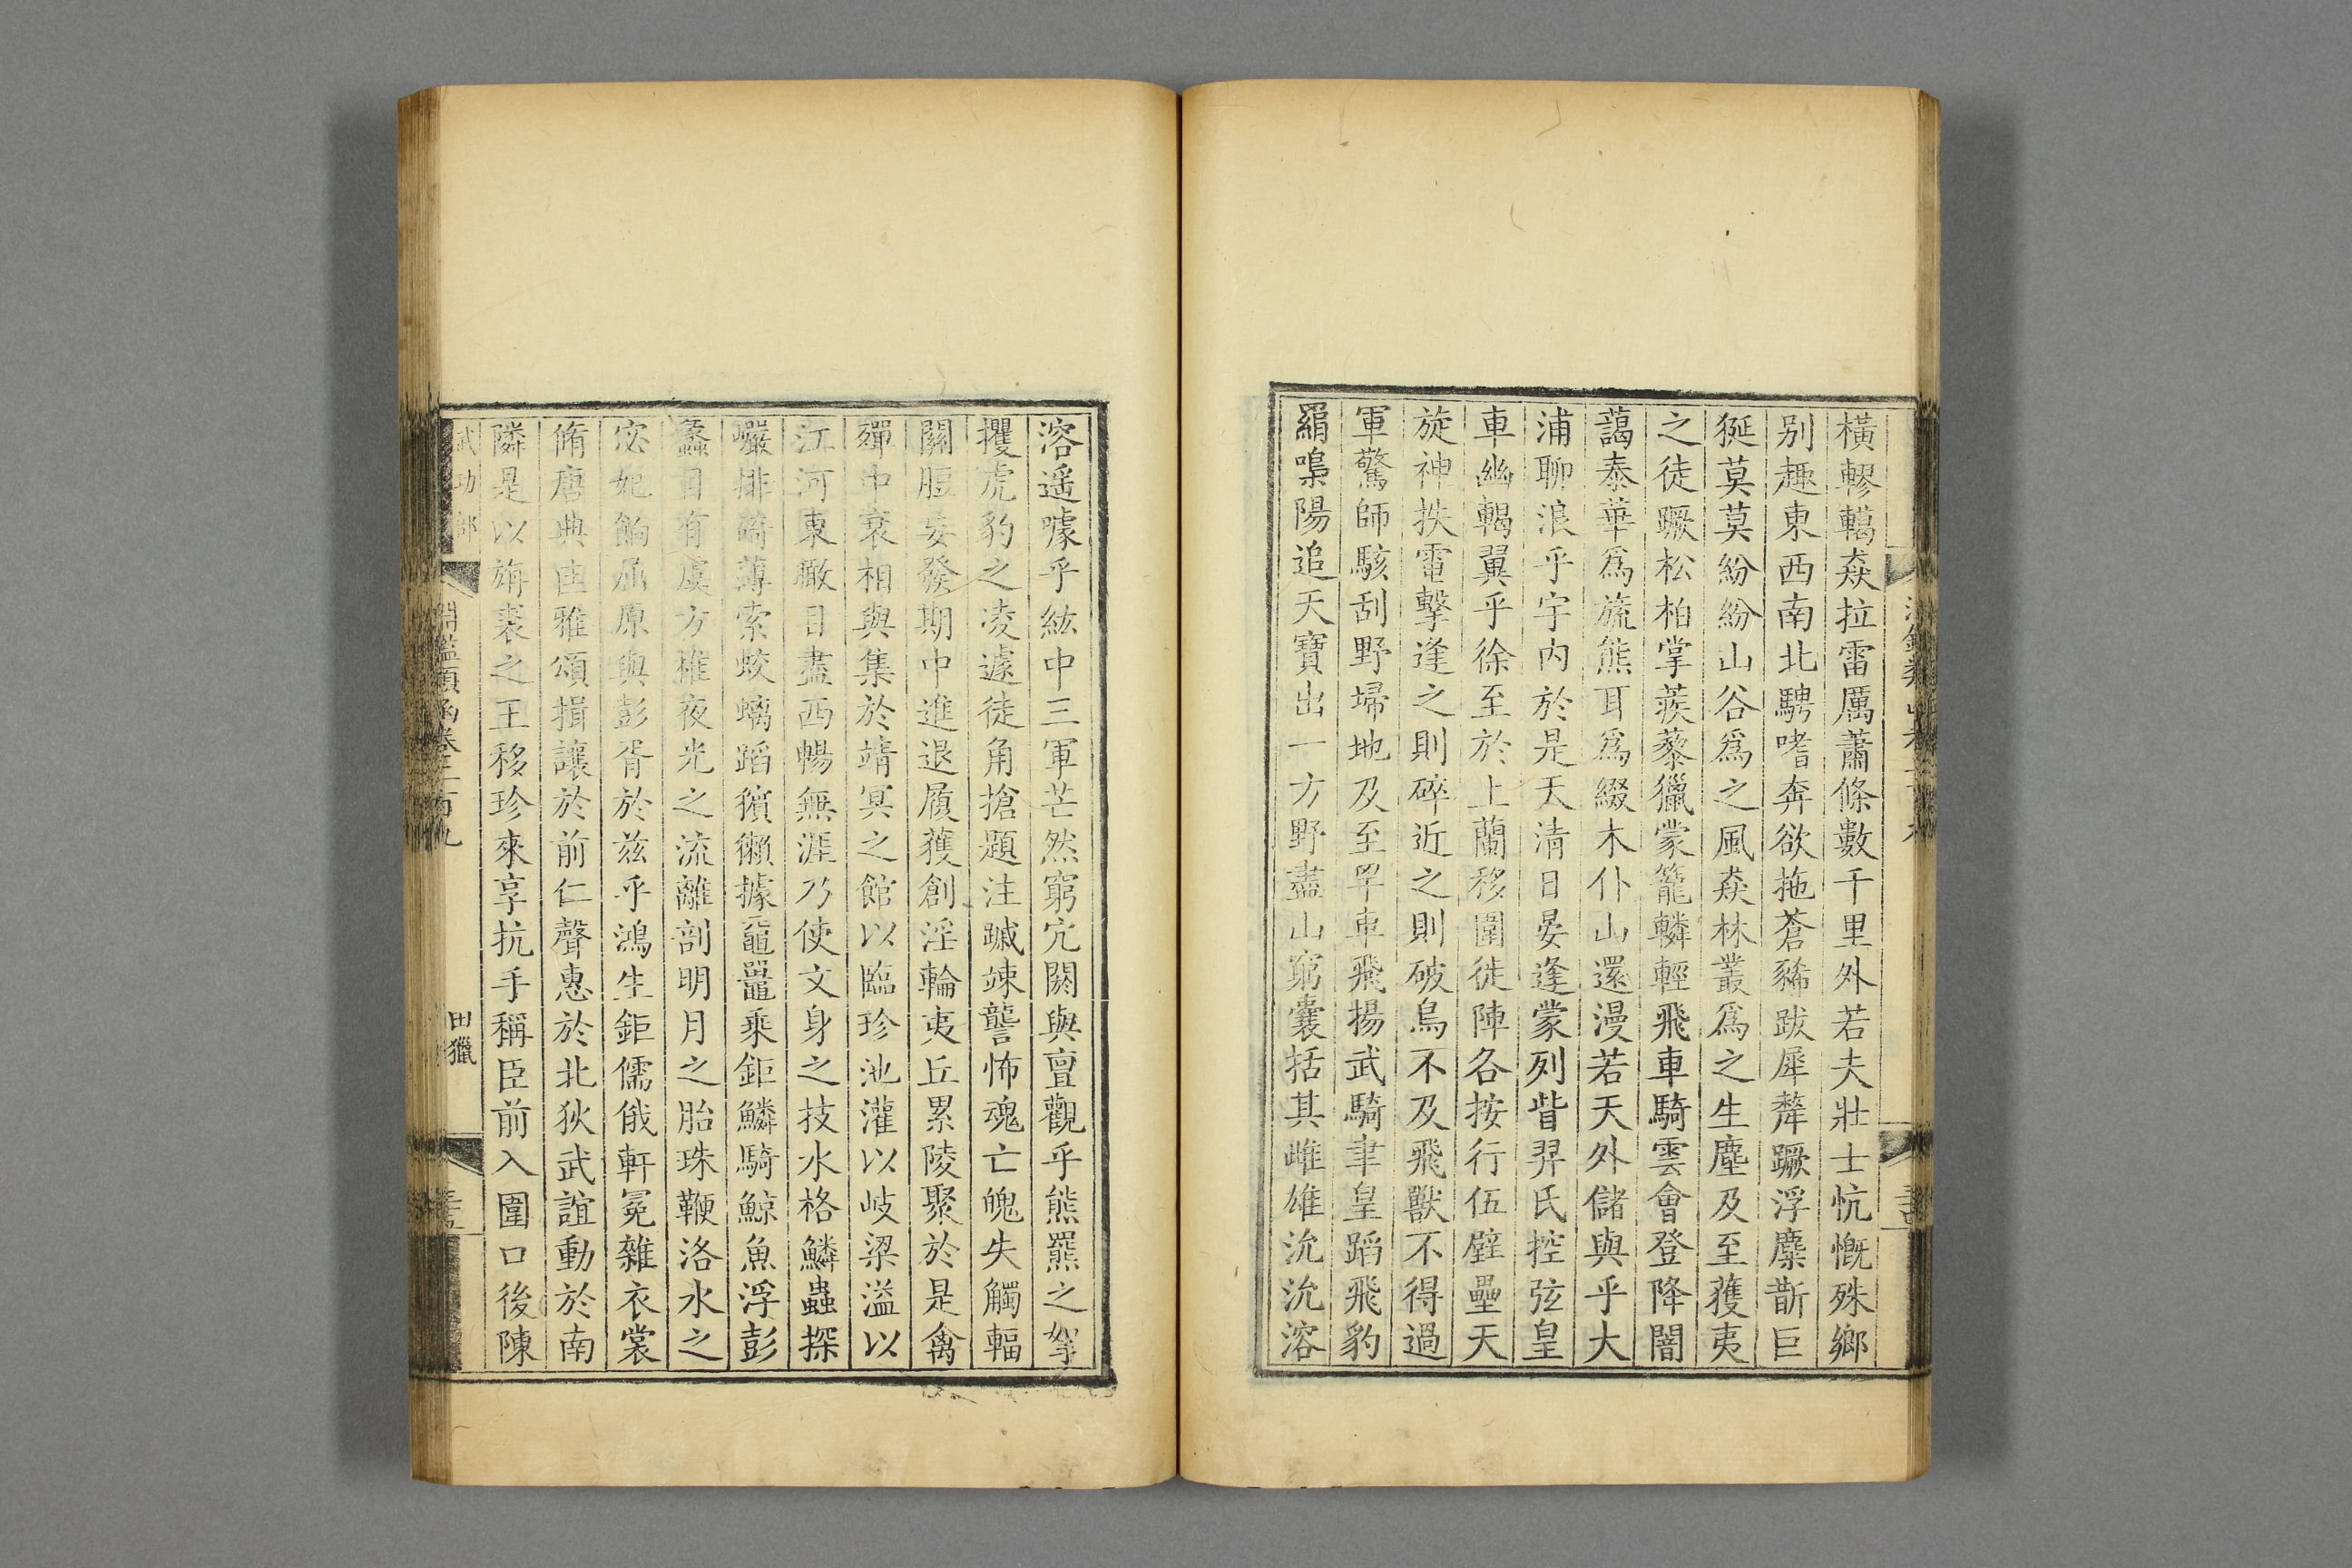 橫轇轕猋拉雷厲蕭條數千里外若夫壯士忼慨殊鄉
别趣東西南北騁嗜奔欲拖蒼豨跋犀犛蹶浮麋斮巨
狿莫莫紛紛山谷爲之風猋林叢爲之生塵及至獲夷
之徒蹶松柏掌蒺藜獵蒙籠轔輕飛車騎雲會登降闇
藹泰華爲旒熊耳爲綴木仆山還漫若天外儲與乎大
浦聊浪乎宇内於是天清日晏逢蒙列眥羿氏控弦皇
車幽輵翼乎徐至於上蘭移圍徙陣各按行伍壁壘天
旋神抶電擊逢之則碎近之則破鳥不及飛獸不得過
軍驚師駭刮野埽地及至罕車飛揚武騎聿皇蹈飛豹
羂嘄陽追天寶出一方野盡山窮囊括其雌雄沇沇溶
溶遥噱乎紘中三軍芒然窮冘閼與亶觀乎熊羆之挐
攫虎豹之凌遽徒角搶題注蹴竦讋怖魂亡魄失觸輻
關脰妄發期中進退履獲創淫輪夷丘累陵聚於是禽
殫中衰相與集於靖冥之館以臨珍池灌以岐梁溢以
江河東瞰目盡西暢無涯乃使文身之技水格鱗蟲探
巖排碕薄索蛟螭蹈獱獺據黿鼉乘鉅鱗騎鯨魚浮彭
蠡目有虞方椎夜光之流離剖明月之胎珠鞭洛水之
宓妃餉屈原與彭胥於兹乎鴻生鉅儒俄軒冕雜衣裳
脩唐典匡雅頌揖讓於前仁聲惠於北狄武誼動於南
隣是以旃裘之王移珍來享抗手稱臣前入圍口後陳
武功部
淵鑑類函卷二百九
田獵